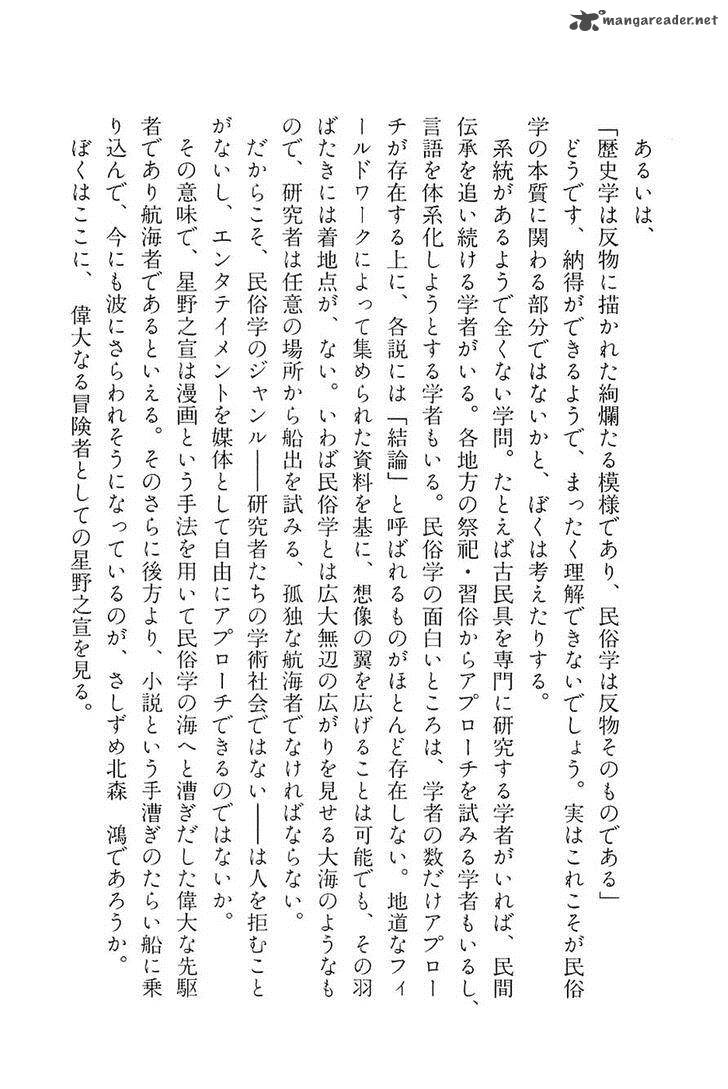 mangareader.net
あるいは、
「歴史学は反物に描かれた絢爛たる模様であり、民俗学は反物そのものである」
どうです、納得ができるようで、まったく理解できないでしょう。実はこれこそが民俗
学の本質に関わる部分ではないかと、ぼくは考えたりする。
系統があるようで全くない学問。たとえば古民具を専門に研究する学者がいれば、民間
伝承を追い続ける学者がいる。各地方の祭祀・習俗からアプローチを試みる学者もいるし、
言語を体系化しようとする学者もいる。民俗学の面白いところは、学者の数だけアプロー
チが存在する上に、各説には「結論」と呼ばれるものがほとんど存在しない。地道なフィ
ールドワークによって集められた資料を基に、想像の翼を広げることは可能でも、その羽
ばたきには着地点が、ない。いわば民俗学とは広大無辺の広がりを見せる大海のようなも
ので、研究者は任意の場所から船出を試みる、孤独な航海者でなければならない。
だからこそ、民俗学のジャンル――研究者たちの学術社会ではない――は人を拒むこと
がないし、エンタテイメントを媒体として自由にアプローチできるのではないか。
その意味で、星野之宣は漫画という手法を用いて民俗学の海へと漕ぎだした偉大な先駆
者であり航海者であるといえる。そのさらに後方より、小説という手漕ぎのたらい船に乗
り込んで、今にも波にさらわれそうになっているのが、さしずめ北森　鴻であろうか。
ぼくはここに、　偉大なる冒険者としての星野之宣を見る。